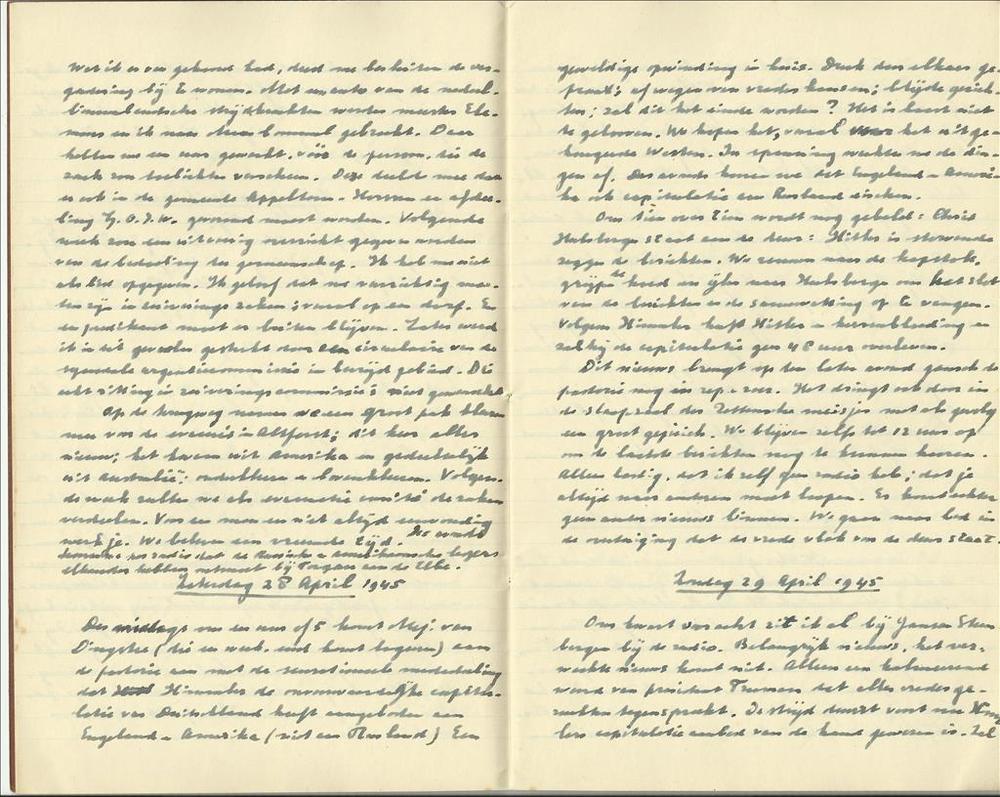 Wat ik er van gehoord had, deed me besluiten de ver-
gadering bij te wonen. Met een auto van de neder-
binnenlandsche strijdkrachten werden
en ik naar gebracht. Daar
hebben we een uur gewacht, vóór de persoon, die de
zaak zou toelichten verscheen. Deze deelde mee dat
er ook in de gemeente Appeltern - Horssen een afdee-
ling G.O.I.W. gevormd moest worden. Volgende
week zou een uitvoerig overzicht gegeven worden
van de bedoeling der gemeenschap. Ik heb me niet
als lid opgegeven. Ik geloof dat we voorzichtig moe-
ten zijn in zuiverings zaken; vooral op een dorp. En
een predikant moet er buiten blijven. Later werd
ik in dit gevoelen gesterkt door een circulaire van de
synodale in bevrijd gebied. Die
acht zitting in zuiveringscommissie's niet gewenscht
Op de terugweg namen we een groot pak kleren
mee voor de evacués in Altforst; dit keer alles
nieuw; het kwam uit Amerika en gedeeltelijk
uit Australië; onderkleren en bovenkleren. Volgen-
de week zullen we als evacuatie comité de zaken
verdeelen. Voor een man een niet altijd eenvoudig
werkje. We beleven een vreemde tijd. De avond
per radio dat de Russische en Amerikaansche legers
elkander hebben ontmoet bij Torgau aan de Elbe.
Zaterdag 28 April 1945
Des middags van een uur of 5 komt Mej. van
Dingstee (die en komt logeren) aan
de pastorie aan met de sensationeele mededeling
dat Himmler de onvoorwaardelijke capitu-
latie van Duitschland heeft aangeboden aan
Engeland en Amerika (niet aan Rusland) Een
geweldige opwinding in huis. Druk door elkaar ge-
praat; afwegen van vredes kansen; blijde gezich-
ten; zal dit het einde worden? Het is haast niet
te gelooven. We hopen het, vooral voor het uitge-
hongerde Westen. In spanning wachten we de din-
gen af. Des avonds horen we dat Engeland en Ameri-
ka ook capitulatie aan Rusland eischen.
Om tien over tien wordt nog gebeld: Chris
Hulsbergen staat aan de deur: Hitler is stervende
zeggen de berichten. We rennen naar de kapstok,
grijpen de hoed en ijlen naar Hulsbergen om het slot
van de berichten en de samenvatting op te vangen.
Volgens Himmler heeft Hitler een hersenbloeding en
zal hij de capitulatie geen 48 uur overleven.
Dit nieuws brengt op den laten avond gansch de
pastorie nog in rep en roer. Het dringt ook door in
de slaapzaal der Zettensche meisjes met als gevolg
een groot gejuich. We blijven zelfs tot 12 uur op
om de laatste berichten nog te kunnen hooren.
Alleen lastig, dat ik zelf geen radio heb; dat je
altijd naar anderen moet loopen. Er komt echter
geen ander nieuws binnen. We gaan naar bed in
de overtuiging dat de vrede vlak voor de deur staat.
Zondag 29 April 1945
Om kwart voor acht zit ik al bij Jansen Steen-
bergen bij de radio. Belangrijk nieuws, het ver-
wachte nieuws komt niet. Alleen een kalmeerend
woord van president Truman dat alles vredes ge-
ruchten tegenspreekt. De strijd duurt voort nu Himm-
lers capitulatie aanbod van de hand gewezen is. Zal